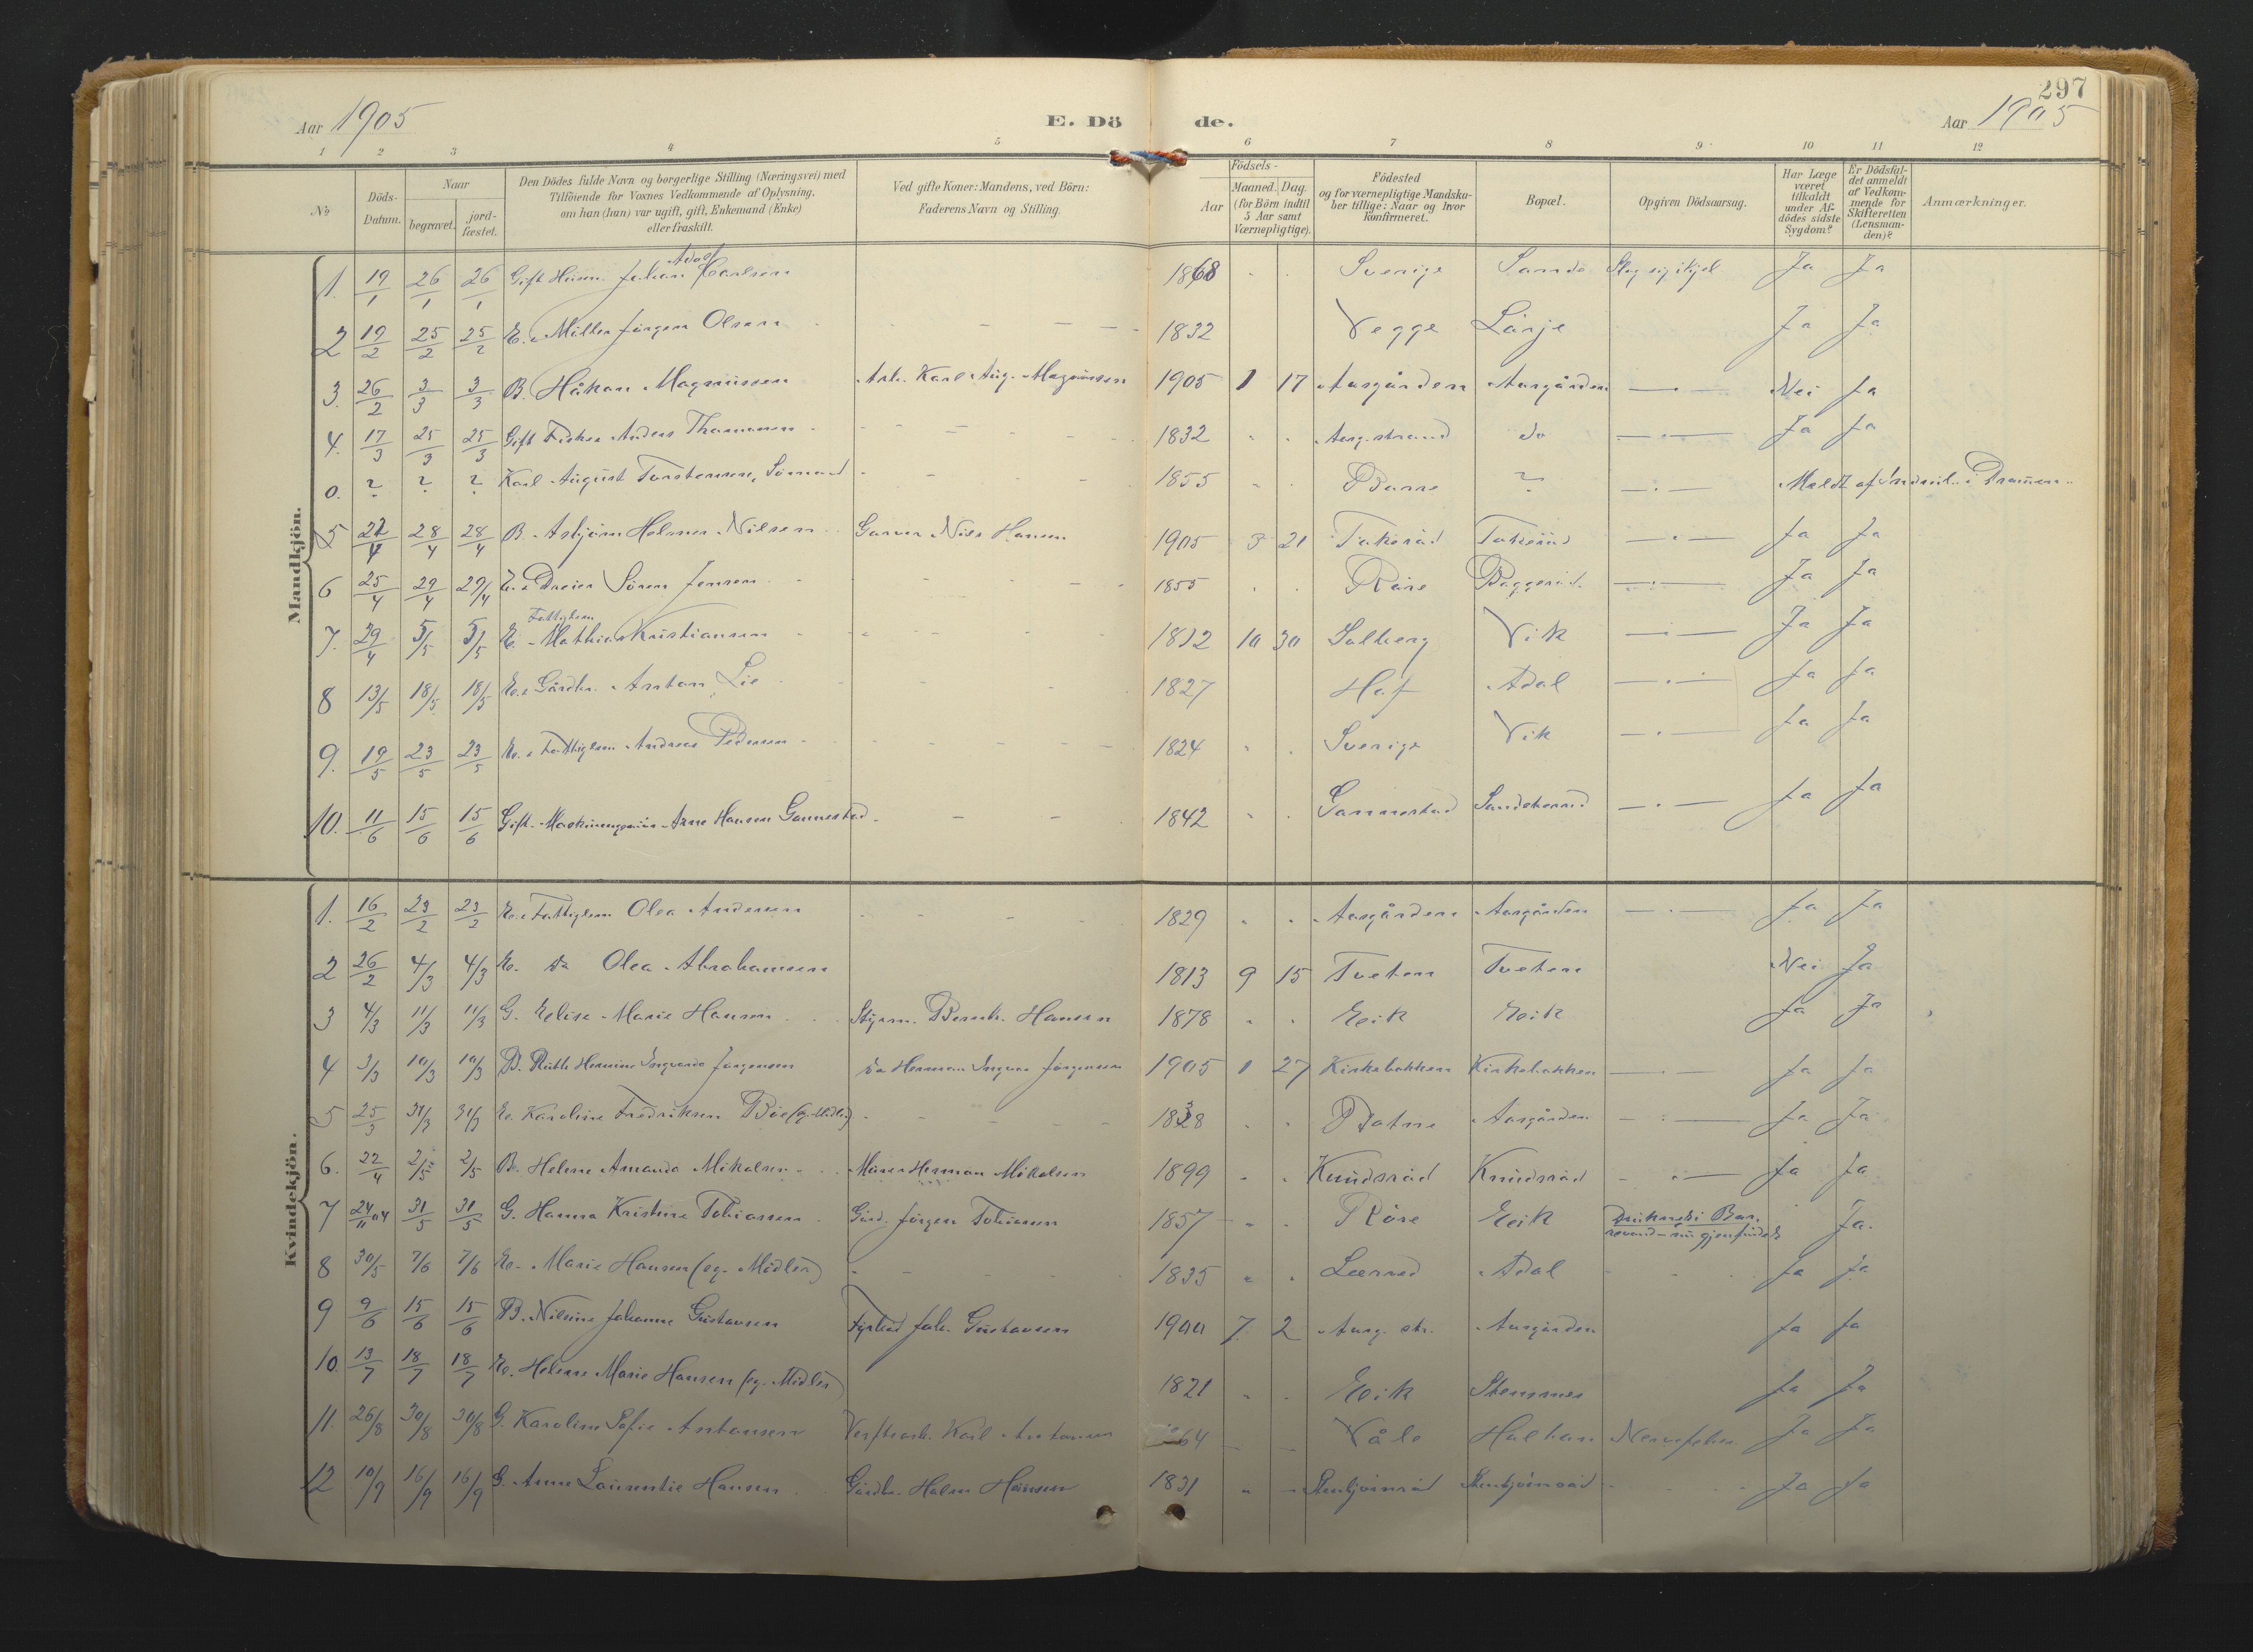 297
Aar 1905 E. Döde. Aar 1905
1 2 3 4 5 6 7 8 9 10 11 12
№ Döds-Datum. Naar begravet. jord-fæstet. Den Dödes fulde Navn og borgerlige Stilling (Næringsvei) med Tilföiende for Voxnes Vedkommende af Oplysning. om han (hun) var ugift, gift, Enkemand (Enke) eller fraskilt. Ved gifte Koner: Mandens, ved Börn: Faderens Navn og Stilling. Födsels- Aar Maaned. Dag. (for Börn indtil 5 Aar samt Værnepligtige). Födested og for værnepligtige Mandskaber tillige: Naar og hvor Konfirmeret. Bopæl. Opgiven Dödsaarsag. Har Læge været tilkaldt under Afdödes sidste Sygdom? Er Dödsfaldet anmeldt af Vedkommende for Skifteretten (Lensmanden)? Anmærkninger.
Mandkjön.
1. 19/1 26/1 26/1 Gift Husm. Johan Adolf Karlsen 1868 Sverige Sande Slog sig ihjel Ja Ja
2 19/2 25/2 25/2 E. Möller Jörgen Olsen 1832 Vegge Ja Ja
3. 26/2 3/3 3/3 B. Håkon Magnussen Arb. Karl Aug. Magnussen 1905 1 17 Aasgården Aasgården Nei Ja
4. 17/3 25/3 25/3 Gift Fisker Anders Thomassen 1832 Aasg. strand do Ja Ja
0. ? ? ? Karl August Torstensen, Sömand 1855 Borre ? Meldt af Drammen
5 22/4 28/4 28/4 B. Asbjörn Helmer Nilsen Garver Nils Hansen 1905 3 21 Takeröd Takeröd Ja Ja
6 25/4 29/4 29/4 E. Dreier Sören Jensen 1855 Röre Baggeröd Ja Ja
7. 29/4 5/5 5/5 E. Fattiglem Mathias Kristiansen 1812 10 30 Solberg Vik Ja Ja
8 13/5 18/5 18/5 E. Gårdbr. Anton Lie 1827 Hof Adal Ja Ja
9. 19/5 23/5 23/5 E. Fattiglem Andreas Pedersen 1824 Sverige Vik Ja Ja
10. 11/6 15/6 15/6 Gift. Maskiningeniör Arne Hansen Gannestad 1842 Gannestad Sandeherred Ja Ja
Kvindekjön.
1. 16/2 23/2 23/2 E. Fattiglem Olea Andersen 1829 Aasgården Aasgården Ja Ja
2 26/2 4/3 4/3 E. do Olea Abrahamsen 1813 9 15 Tveten Tveten Nei Ja
3 4/3 11/3 11/3 G. Elise Marie Hansen Styrm. Bernh. Hansen 1878 Eik Eik Ja Ja
4 3/3 10/3 10/3 B. Ruth Hermine Ingvarda Jörgensen do Herman Ingvar Jörgensen 1905 1 27 Kirkebakken Kirkebakken Ja Ja
5 25/3 31/3 31/3 E. Karoline Fredriksen Böe (eg. Midler) 1838 Aasgården Ja Ja
6. 22/4 2/5 2/5 B. Helene Amanda Mikalsen Murer Herman Mikalsen 1899 Knudsröd Knudsröd Ja Ja
7 24/11 04 31/5 31/5 G. Hanna Kristine Tobiassen Gård. Jörgen Tobiassen 1857 Röre Eik Druknet i Borrevand - nu gjenfundet Ja.
8 30/5 7/6 7/6 E. Marie Hansen (eg. Midler) 1835 Adal Ja Ja
9 9/6 15/6 15/6 B. Nilsine Johanne Gustavsen Fyrböd. Joh. Gustavsen 1900 7 2 Aasg. str. Aasgården Ja Ja
10. 13/7 18/7 18/7 E. Helene Marie Hansen (eg. Midler) 1821 Eik Stensnes Ja Ja
11. 26/8 30/8 30/8 G. Karoline Sofie Antonsen Karl Antonsen 64 Våle Halhan Nervefeber Ja Ja
12 10/9 16/9 16/9 G. Anne Laurentie Hansen Gårdbr. Halvor Hansen 1831 Stenbjörnröd Stenbjörnröd Ja Ja